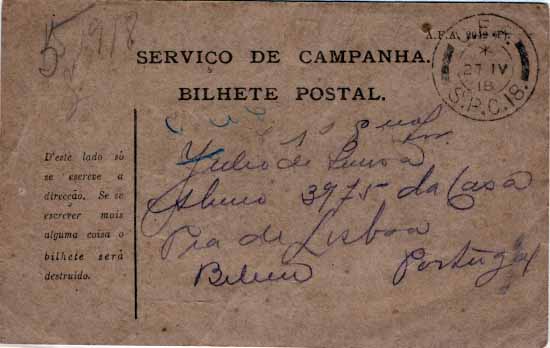 5
1918
A.F.A.
SERVIÇO DE CAMPANHA.
BILHETE POSTAL.
27 IV
18
S.P.C.18.
D'este lado só
se escreve a
direcção. Se se
escrever mais
alguma coisa o
bilhete será
destruido.
Julio de
3975 da Casa
Pia de Lisboa
Belem Portugal